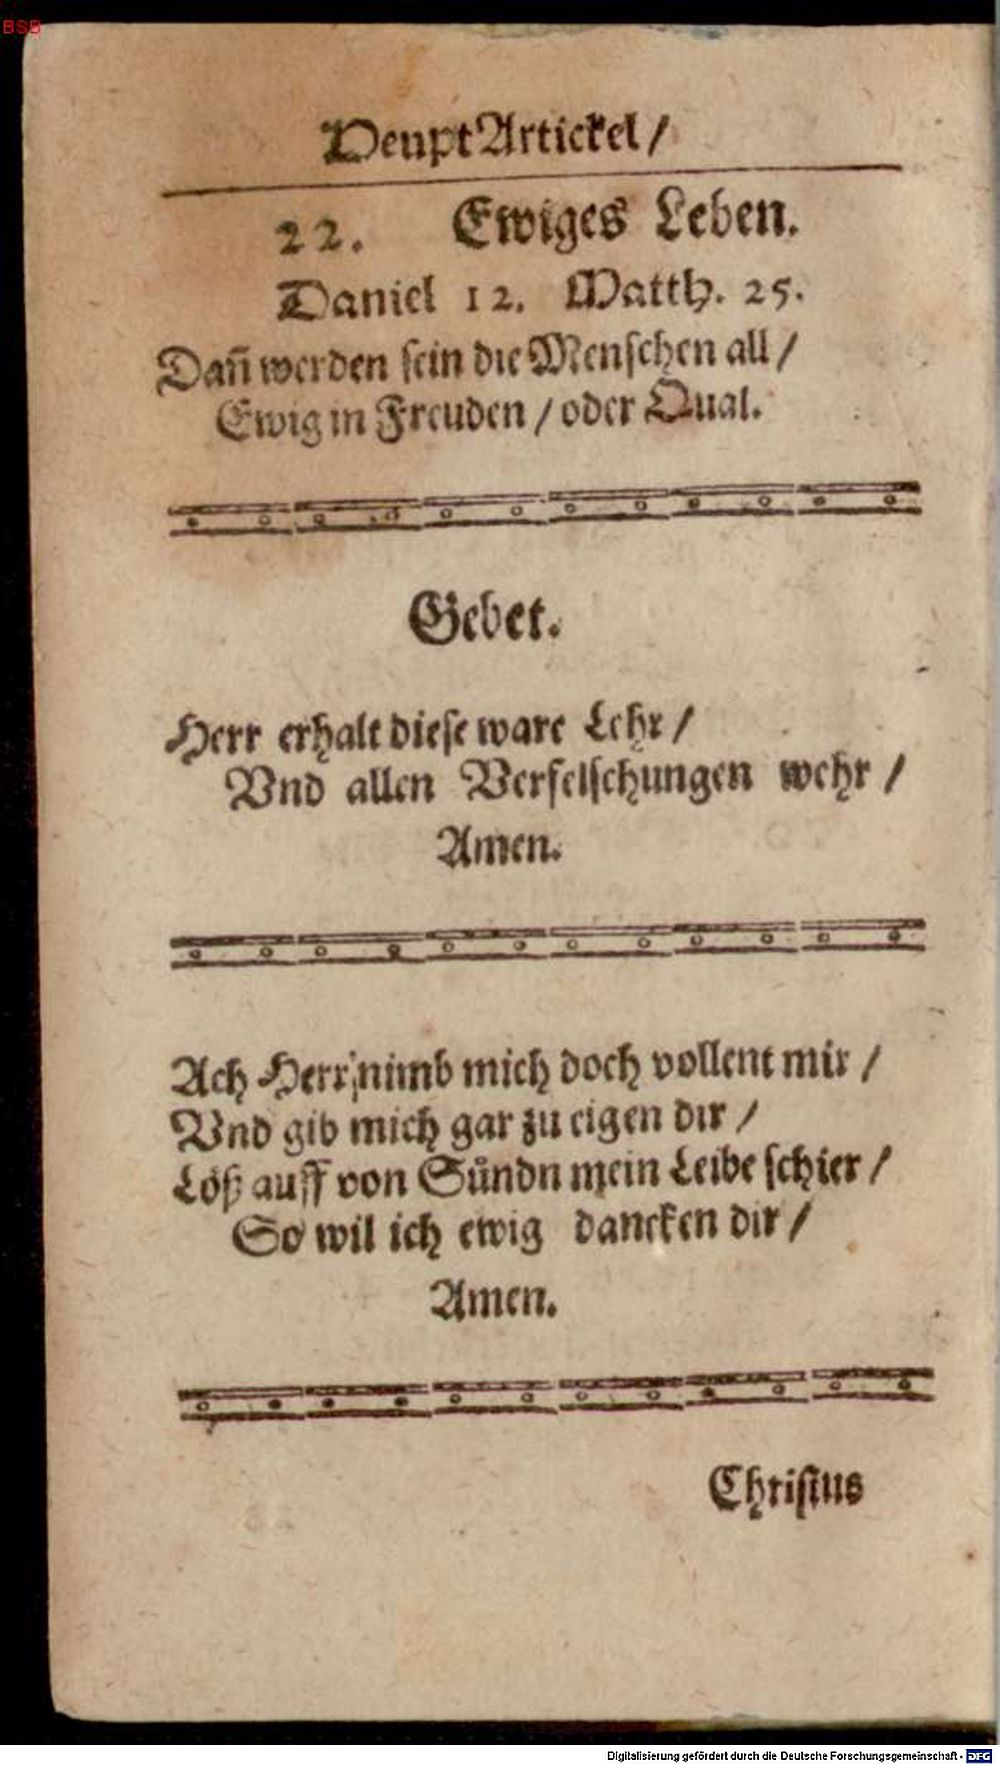 BSB
HeuptArtickel /
22. Ewiges Leben.
Daniel 12. Matth. 25.
Dañ werden sein die Menschen all /
Ewig in Freuden / oder Qual.
Gebet.
Herr erhalt diese ware Lehr /
Vnd allen Verfelschungen wehr /
Amen.
Ach Herr nimb mich doch vollent mir /
Vnd gib mich gar zu eigen dir /
Löß auff von Sůndn mein Leibe schier /
So wil ich ewig dancken dir /
Amen.
Christus
Digitalisierung gefördert durch die Deutsche Forschungsgemeinschaft - DFG